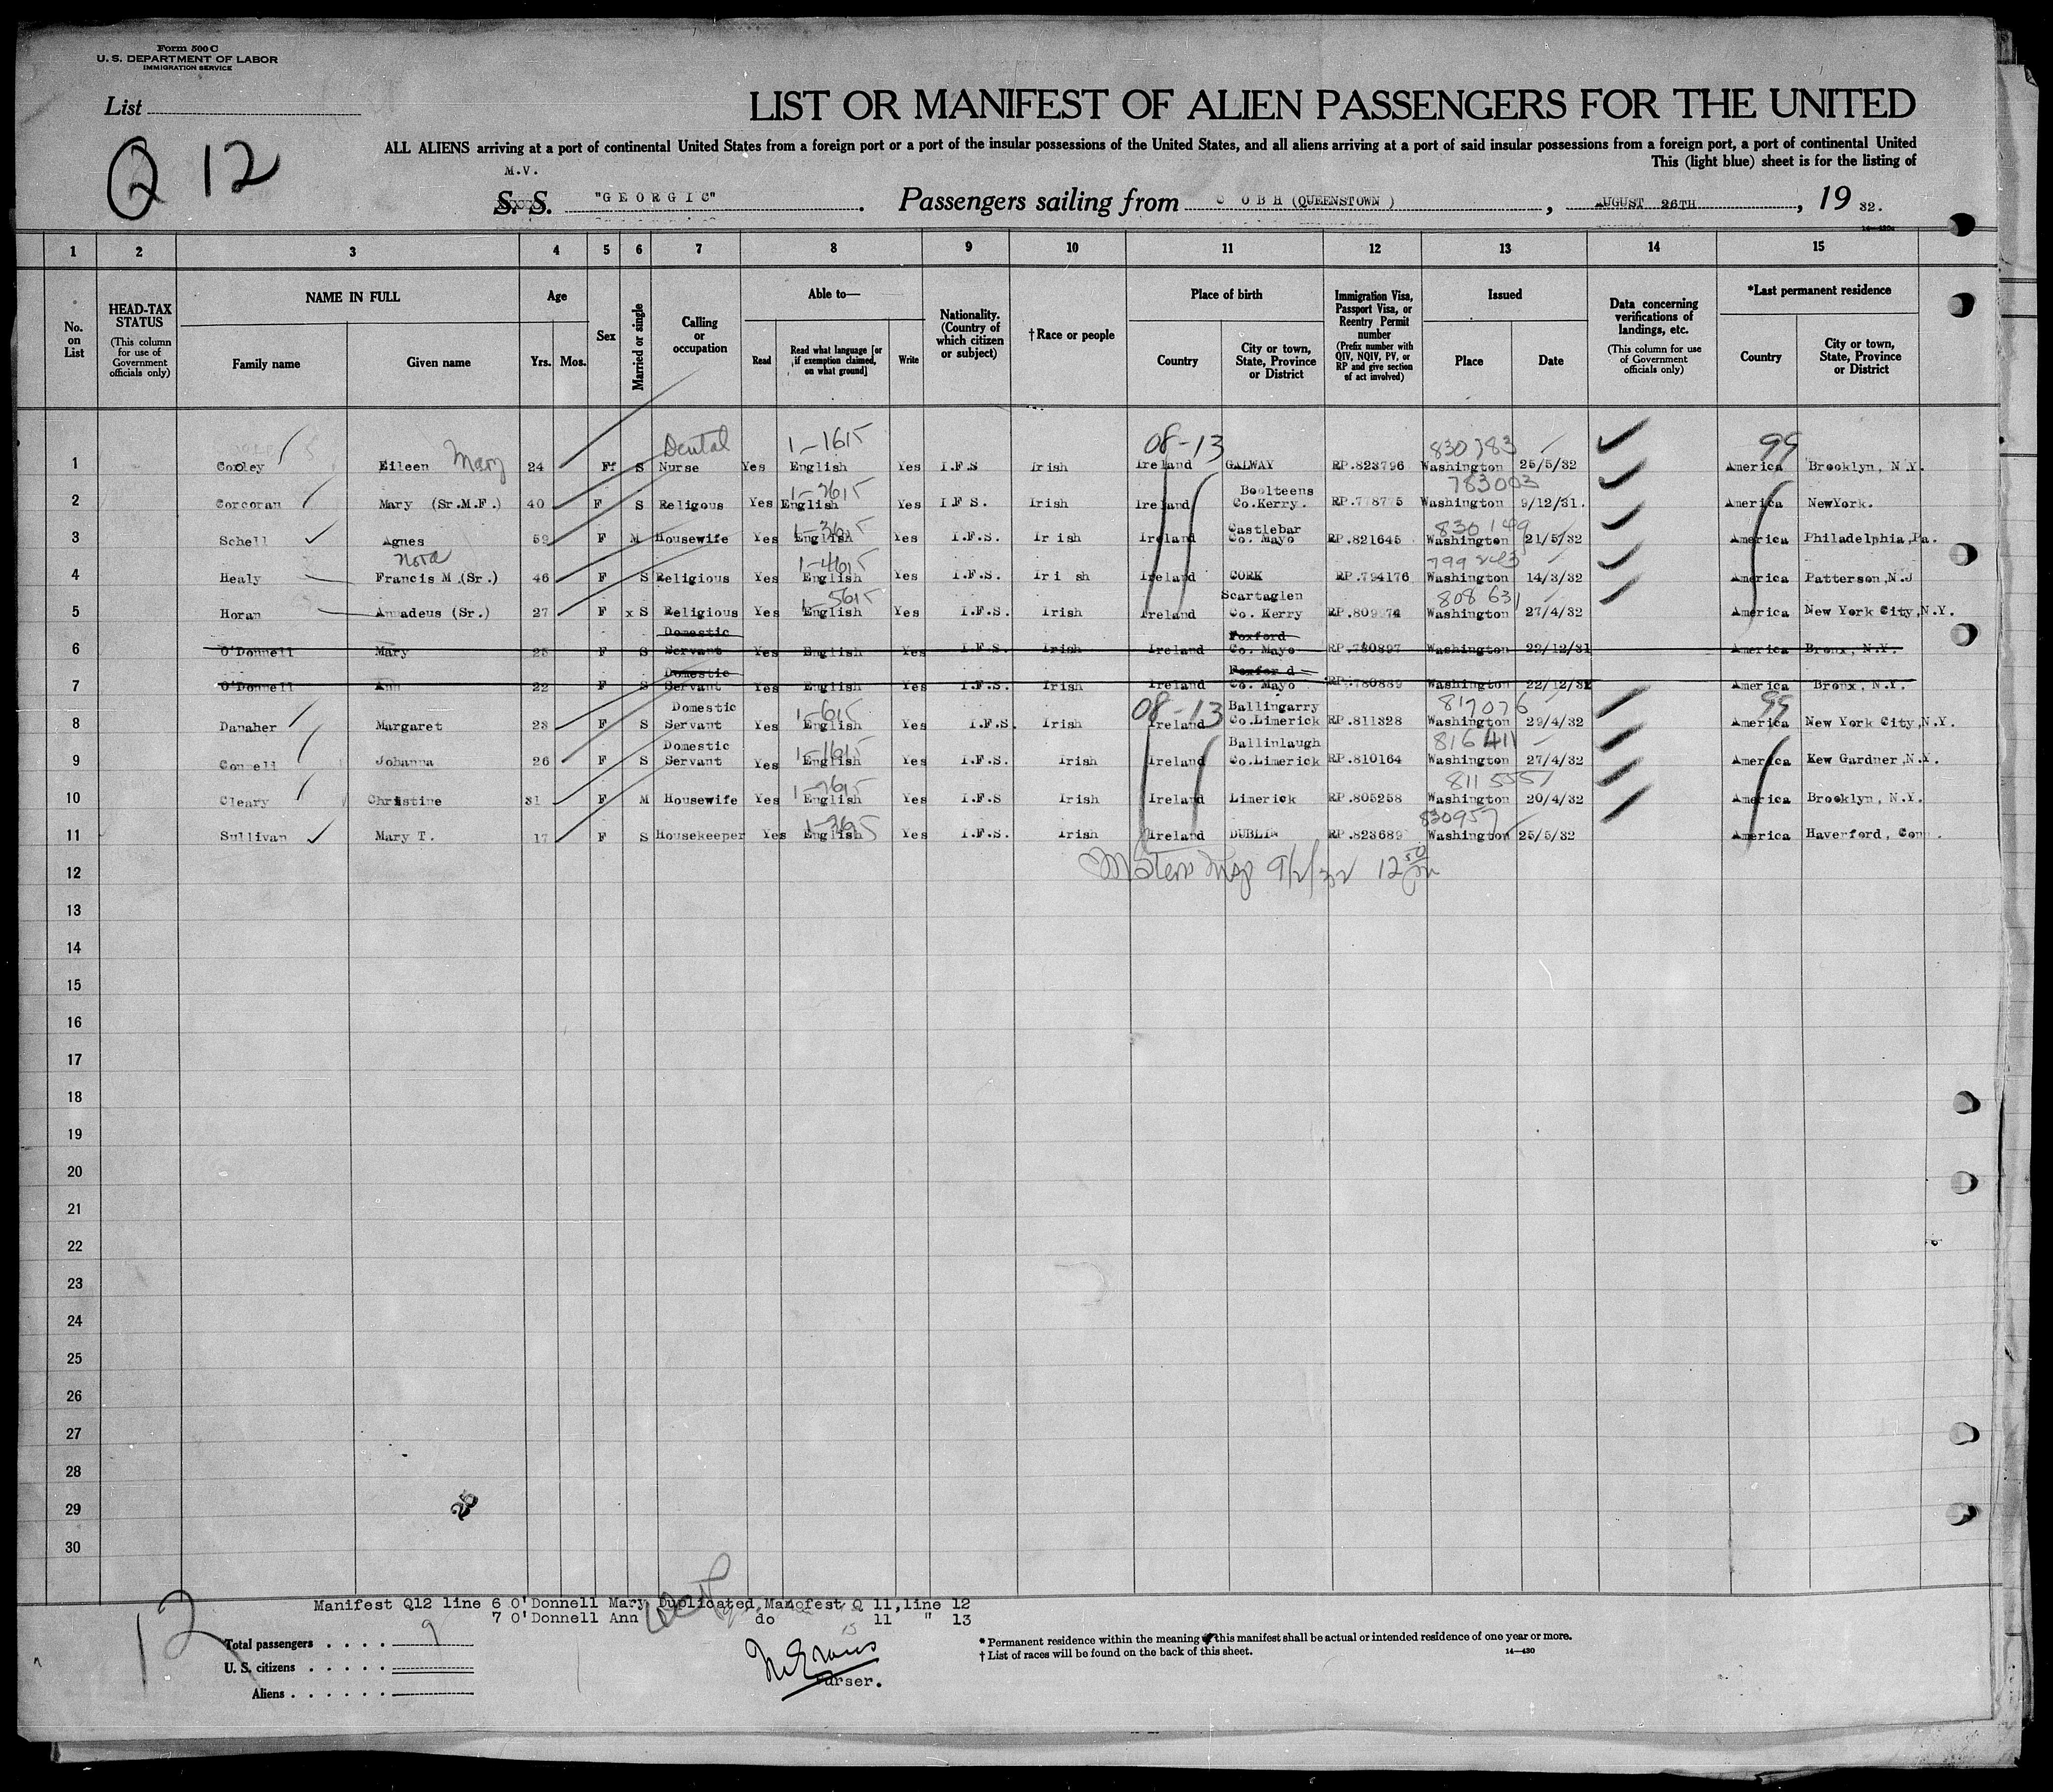 Form 500 C
U. S. DEPARTMENT OF LABOR
IMMIGRATION SERVICE
List
Q 12
LIST OR MANIFEST OF ALIEN PASSENGERS FOR THE UNITED
ALL ALIENS arriving at a port of continental United States from a foreign port or a port of the insular possessions of the United States, and all aliens arriving at a port of said insular possessions from a foreign port, a port of continental United
This (light blue) sheet is for the listing of
M.V.
S. S. "GEORGIC". Passengers sailing from C OBH (QUEENSTOWN ), AUGUST 26TH, 19 32.
14—430a
1 2 3 4 5 6 7 8 9 10 11 12 13 14 15
No. on List
HEAD-TAX STATUS (This column for use of Government officials only)
NAME IN FULL Family name Given name
Age Yrs. Mos.
Sex
Married or single
Calling or occupation
Able to— Read Read what language [or if exemption claimed, on what ground] Write
Nationality. (Country of which citizen or subject)
† Race or people
Place of birth Country City or town, State, Province or District
Immigration Visa, Passport Visa, or Reentry Permit number (Prefix number with QIV, NQIV, PV, or RP and give section of act involved)
Issued Place Date
Data concerning verifications of landings, etc. (This column for use of Government officials only)
*Last permanent residence Country City or town, State, Province or District
Dental 1-1615 08-13 830783 99
1 Cooley Eileen Mary 24 Ff S Nurse Yes English Yes I.F.S Irish Ireland GALWAY RP.823796 Washington 25/5/32 America Brooklyn, N.Y.
1-2615 Boolteens 783003
2 Corcoran Mary (Sr.M.F.) 40 F S Religous Yes English Yes I.F S. Irish Ireland Co.Kerry. RP.778775 Washington 9/12/31. America NewYork.
1-3615 Castlebar 830149
3 Schell Agnes 52 F M Housewife Yes English Yes I.F.S. Ir ish Ireland Co. Mayo RP.821645 Washington 21/5/32 America Philadelphia,Pa.
Nora 1-4615 799243
4 Healy Francis M.(Sr.) 46 F S Religious Yes English Yes I.F.S. Iri sh Ireland CORK RP.794176 Washington 14/3/32 America Patterson,N.J
1-5615 Scartaglen 808631
5 Horan Amadeus (Sr.) 27 F x S Religious Yes English Yes I.F.S. Irish Ireland Co. Kerry RP.809974 Washington 27/4/32 America New York City,N.Y.
Domestic Foxford
6 O'Donnell Mary 25 F S Servant Yes English Yes I.F.S. Irish Ireland Co. Mayo RP.780897 Washington 22/12/31 America Bronx, N.Y.
Domestic Foxfor d
7 O'Donnell Ann 22 F S Servant Yes English Yes I.F.S. Irish Ireland Co. Mayo RP.780889 Washington 22/12/31 America Bronx, N.Y.
Domestic 1-615 08-13 Ballingarry 817076 99
8 Danaher Margaret 23 F S Servant Yes English Yes I.F.S. Irish Ireland Co.Limerick RP.811328 Washington 29/4/32 America New York City,N.Y.
Domestic 1-1615 Ballinlaugh 816411
9 Connell Johanna 26 F S Servant Yes English Yes I.F.S. Irish Ireland Co.Limerick RP.810164 Washington 27/4/32 America Kew Gardner,N.Y.
1-2615 811555
10 Cleary Christine 31 F M Housewife Yes English Yes I.F.S Irish Ireland Limerick RP.805258 Washington 20/4/32 America Brooklyn, N.Y.
1-3615 830957
11 Sullivan Mary T. 17 F S Housekeeper Yes English Yes I.F.S. Irish Ireland DUBLIN RP.823689 Washington 25/5/32 America Haverford, Conn.
12 9/2/32 12 50
13
14
15
16
17
18
19
20
21
22
23
24
25
26
27
28
29
30
25
Manifest Q12 line 6 O'Donnell Mary Duplicated,Manofest Q 11,line 12
7 O'Donnell Ann do 11 " 13
12
Total passengers . . . . 9
U. S. citizens . . . . .
Aliens . . . . . .
Purser.
* Permanent residence within the meaning of this manifest shall be actual or intended residence of one year or more.
† List of races will be found on the back of this sheet.
14—430